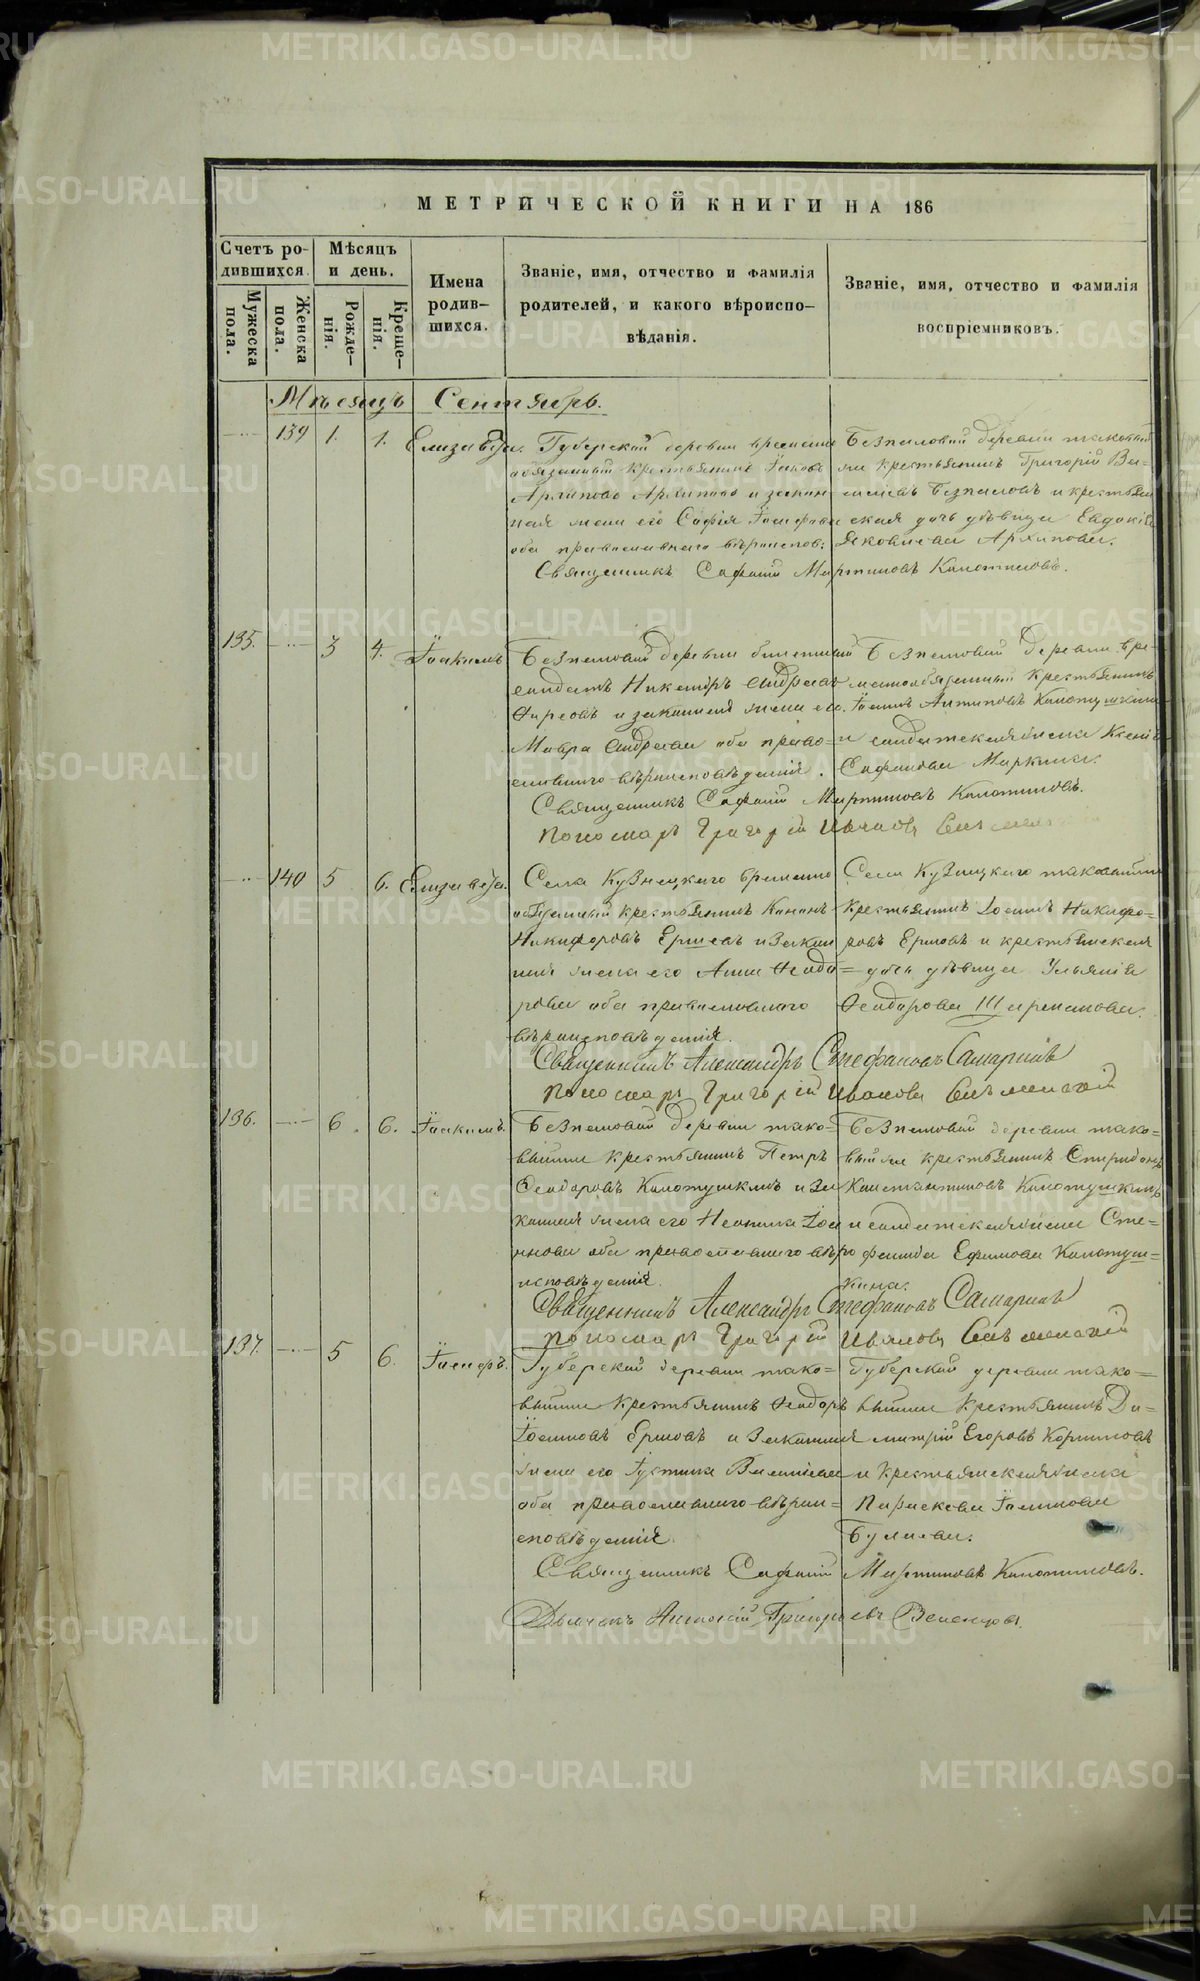 МЕТРИЧЕСКОЙ КНИГИ НА 186
Счетъ ро-
дившихся.
Мѣсяцъ
и день.
Имена
родив-
шихся.
Званіе, имя, отчество и фамилія
родителей, и какого вѣроиспо-
вѣданія.
Званіе, имя, отчество и фамилія
воспріемниковъ.
Мужеска
пола.
Женска
пола.
Рожде-
нія.
Креще-
нія.
Мѣсяцъ Сентябрь.
139 1. 1. Елизавѳа.
Губерской деревни временно
обязанный крестьянинъ Іаковъ
Архиповъ Архиповъ и закон
ная жена его Софія Іосифова
оба православнаго вѣроиспов:
Безпаловой деревни таковый
же крестьянинъ Григорій Ва-
Безпаловъ и крестьян
ская дочь дѣвица Евдокія
Яковлева Архипова.
Священникъ Мартиновъ
135. 3 4. Іоакимъ
Безпаловой деревни билетный
солдатъ Никандръ Андреевъ
и законная жена его
Мавра Андреева оба право-
славнаго вѣроисповѣданія.
Безпаловой деревни вре-
меннообязанный крестьянинъ
Іоаннъ Антиповъ Колотушкинъ
и солдатская жена Ксенія
Маркина.
Священникъ Мартиновъ
Пономарь Григорій Ивановъ
140 5 6. Елизавѳа.
Села Кузнецкаго временно
обязанный крестьянинъ Кононъ
Никифоровъ Ершевъ и закон
ная жена его Анна Ѳеодо=
рова оба православнаго
вѣроисповѣданія.
Села Кузнецкаго таковыйже
крестьянинъ Іоаннъ Никифо=
ровъ Ершовъ и крестьянская
дочь дѣвица Ульянія
Ѳеодорова
Священникъ Александръ Стефановъ Самаринъ
Пономарь Григорій Ивановъ
136. 6. 6. Іоакимъ.
Безпаловой деревни тако=
выйже крестьянинъ Петръ
Ѳеодоровъ Колотушкинъ и за
конная жена его Неонила Іоа
ннова оба православнаго вѣро
исповѣданія.
Безпаловой деревни тако=
выйже крестьянинъ Спиридонъ
Константиновъ Колотушкинъ
и солдатская жена Сте=
фанида Ефимова Колотуш=
кина.
Священникъ Александръ Стефановъ Самаринъ
Пономарь Григорій Ивановъ
137. 5 6. Іосифъ.
Губерской деревни тако=
выйже крестьянинъ Ѳеодоръ
Іоанновъ Ершовъ и законная
жена его Іустина
оба православнаго вѣрои=
сповѣданія.
Губерской деревни тако=
выйже крестьянинъ Ди=
митрій Егоровъ
и крестьянская жена
Параскева Іоаннова
Булаева.
Священникъ Мартиновъ
Дьячекъ Григорьевъ
METRIKI.GASO-URAL.RU